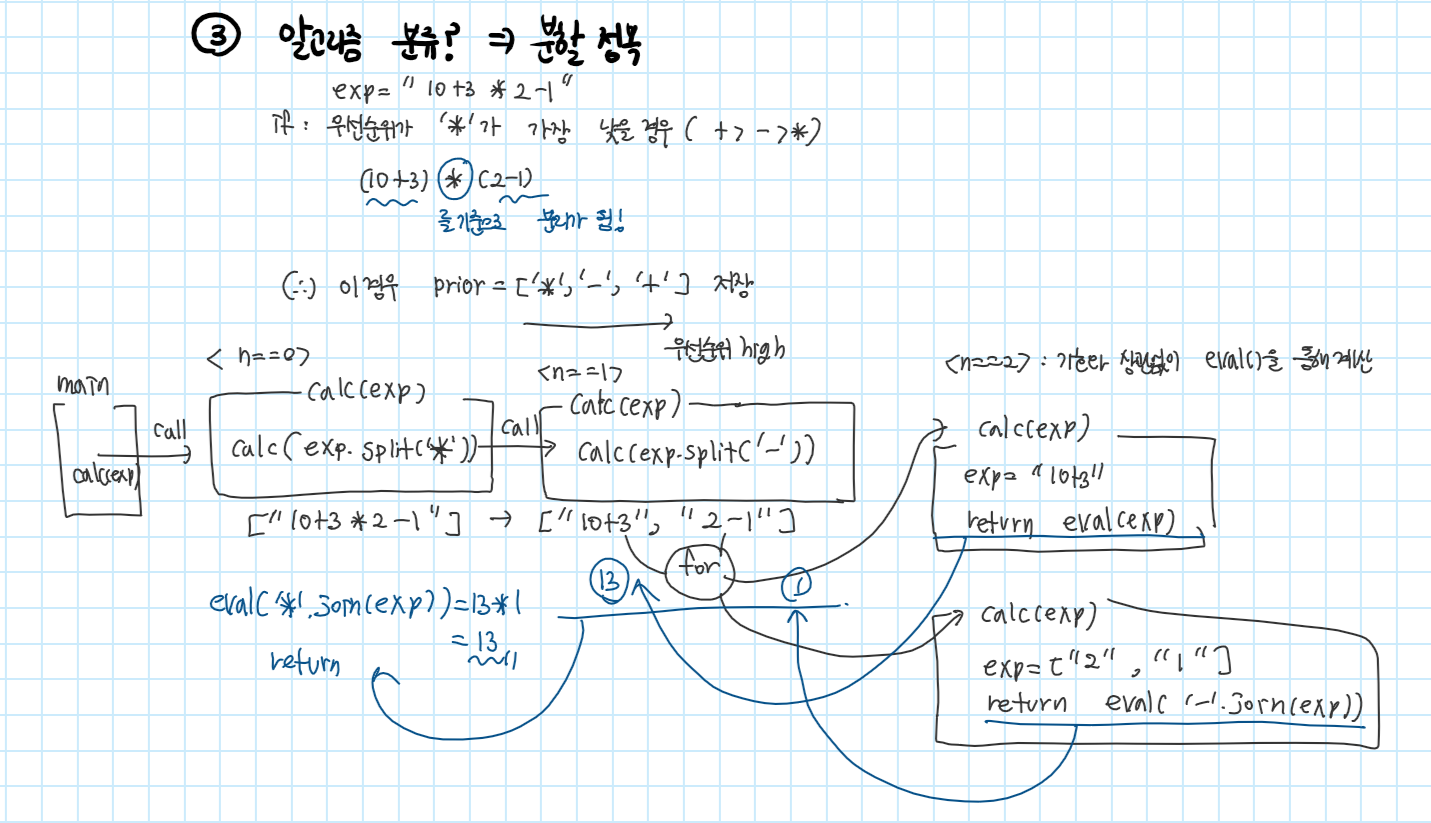 ③ 알고리즘 분류? ⇒ 분할 정복
exp= "10+3 * 2-1"
if : 우선순위가 '*'가 가장 낮을 경우 ( +> ->*)
(10+3) * (2-1)
를 기준으로 분리가 됨!
(∴) 이경우 prior = ['*', '-', '+'] 저장
우선순위 high
< n==0>
<n==1>
<n==2> : 기호랑 상관없이 eval()을 통해 계산
main
calc(exp)
call
calc(exp)
calc( exp. split('*'))
call
calc(exp)
calc(exp.split('-'))
calc(exp)
exp= "10+3"
return eval(exp)
["10+3 *2-1"] → ["10+3", "2-1"]
for
13
1
eval('*'.join(exp))=13*1
= 13
return
calc(exp)
exp=["2", "1"]
return eval( '-'.join(exp))